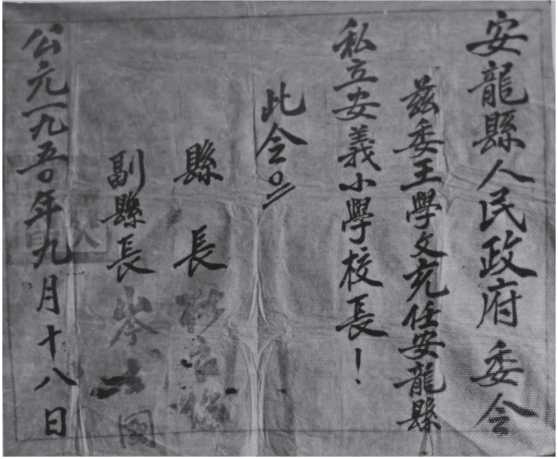 安龍縣人民政府委令
茲委王學文充任安龍縣
私立安義小學校長！
此令。
縣長
副縣長岑
公元一九五〇年九月十八日